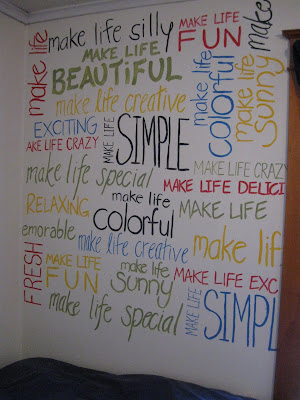 make life
make life silly
MAKE LIFE
FUN
make
MAKE LIFE
BEAUTiFUL
make life
colorful
make life
sunny
make life creative
EXCITING
AKE LIFE CRAZY
MAKE LIFE
SIMPLE
MAKE LIFE CRAZY
make life special
MAKE LIFE DELICI
RELAXING
make life
colorful
MAKE LIFE
emorable
make life creative
make lif
FRESH
MAKE LIFE
FUN
make life
sunny
MAKE LIFE EXC
make life special
MAKE LIFE
SIMPL